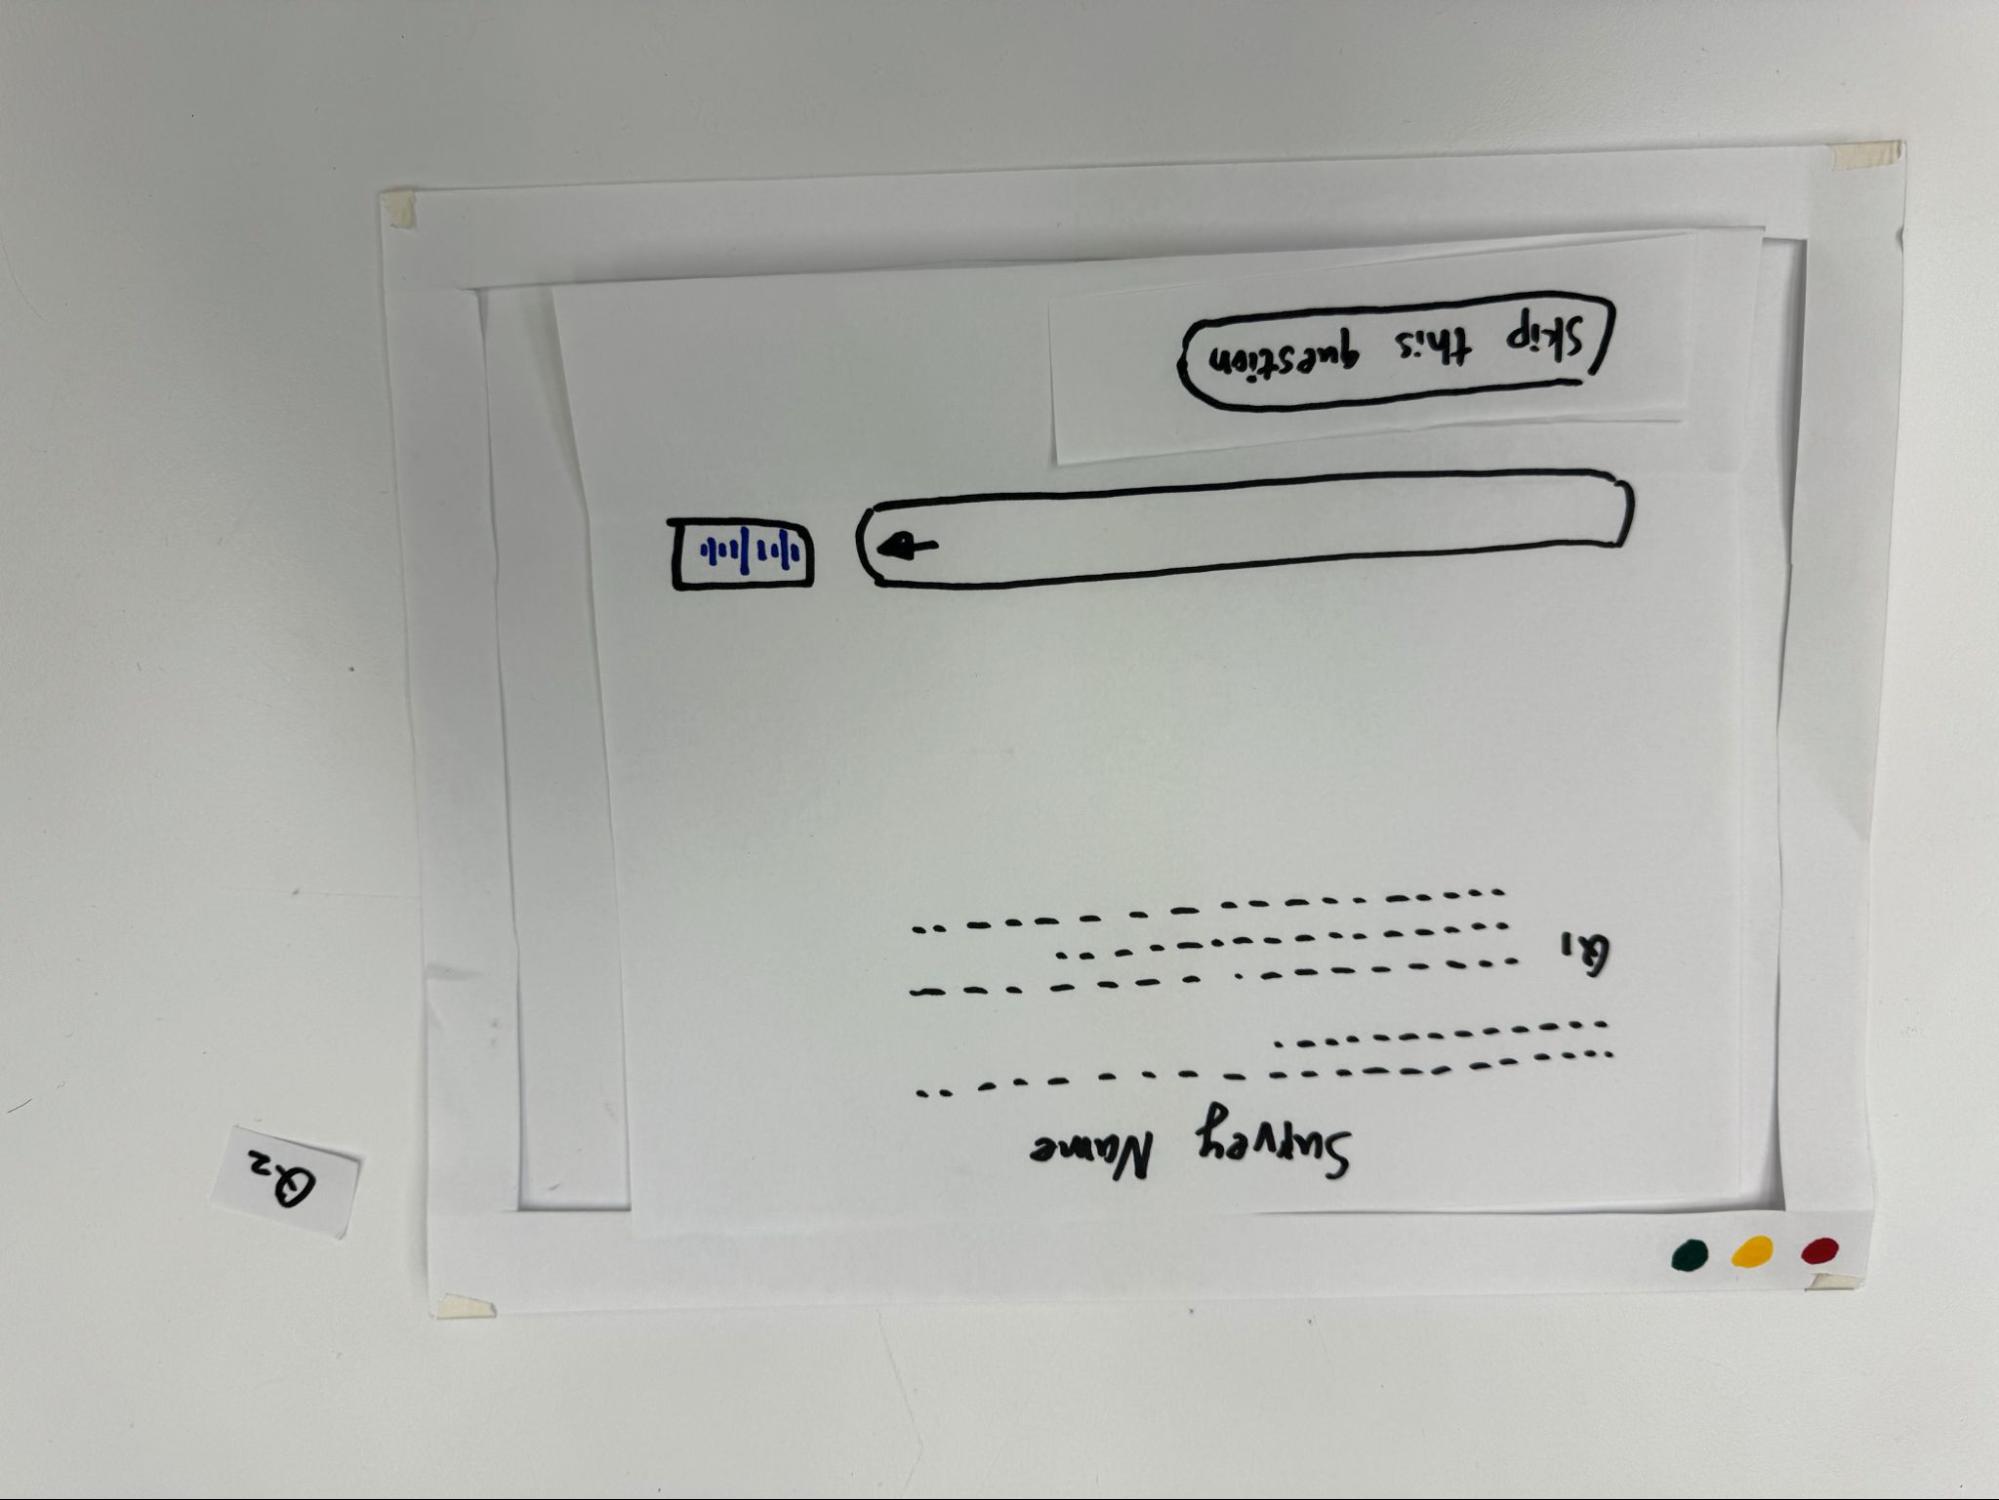 Survey Name
Q1
Skip this question
Q2